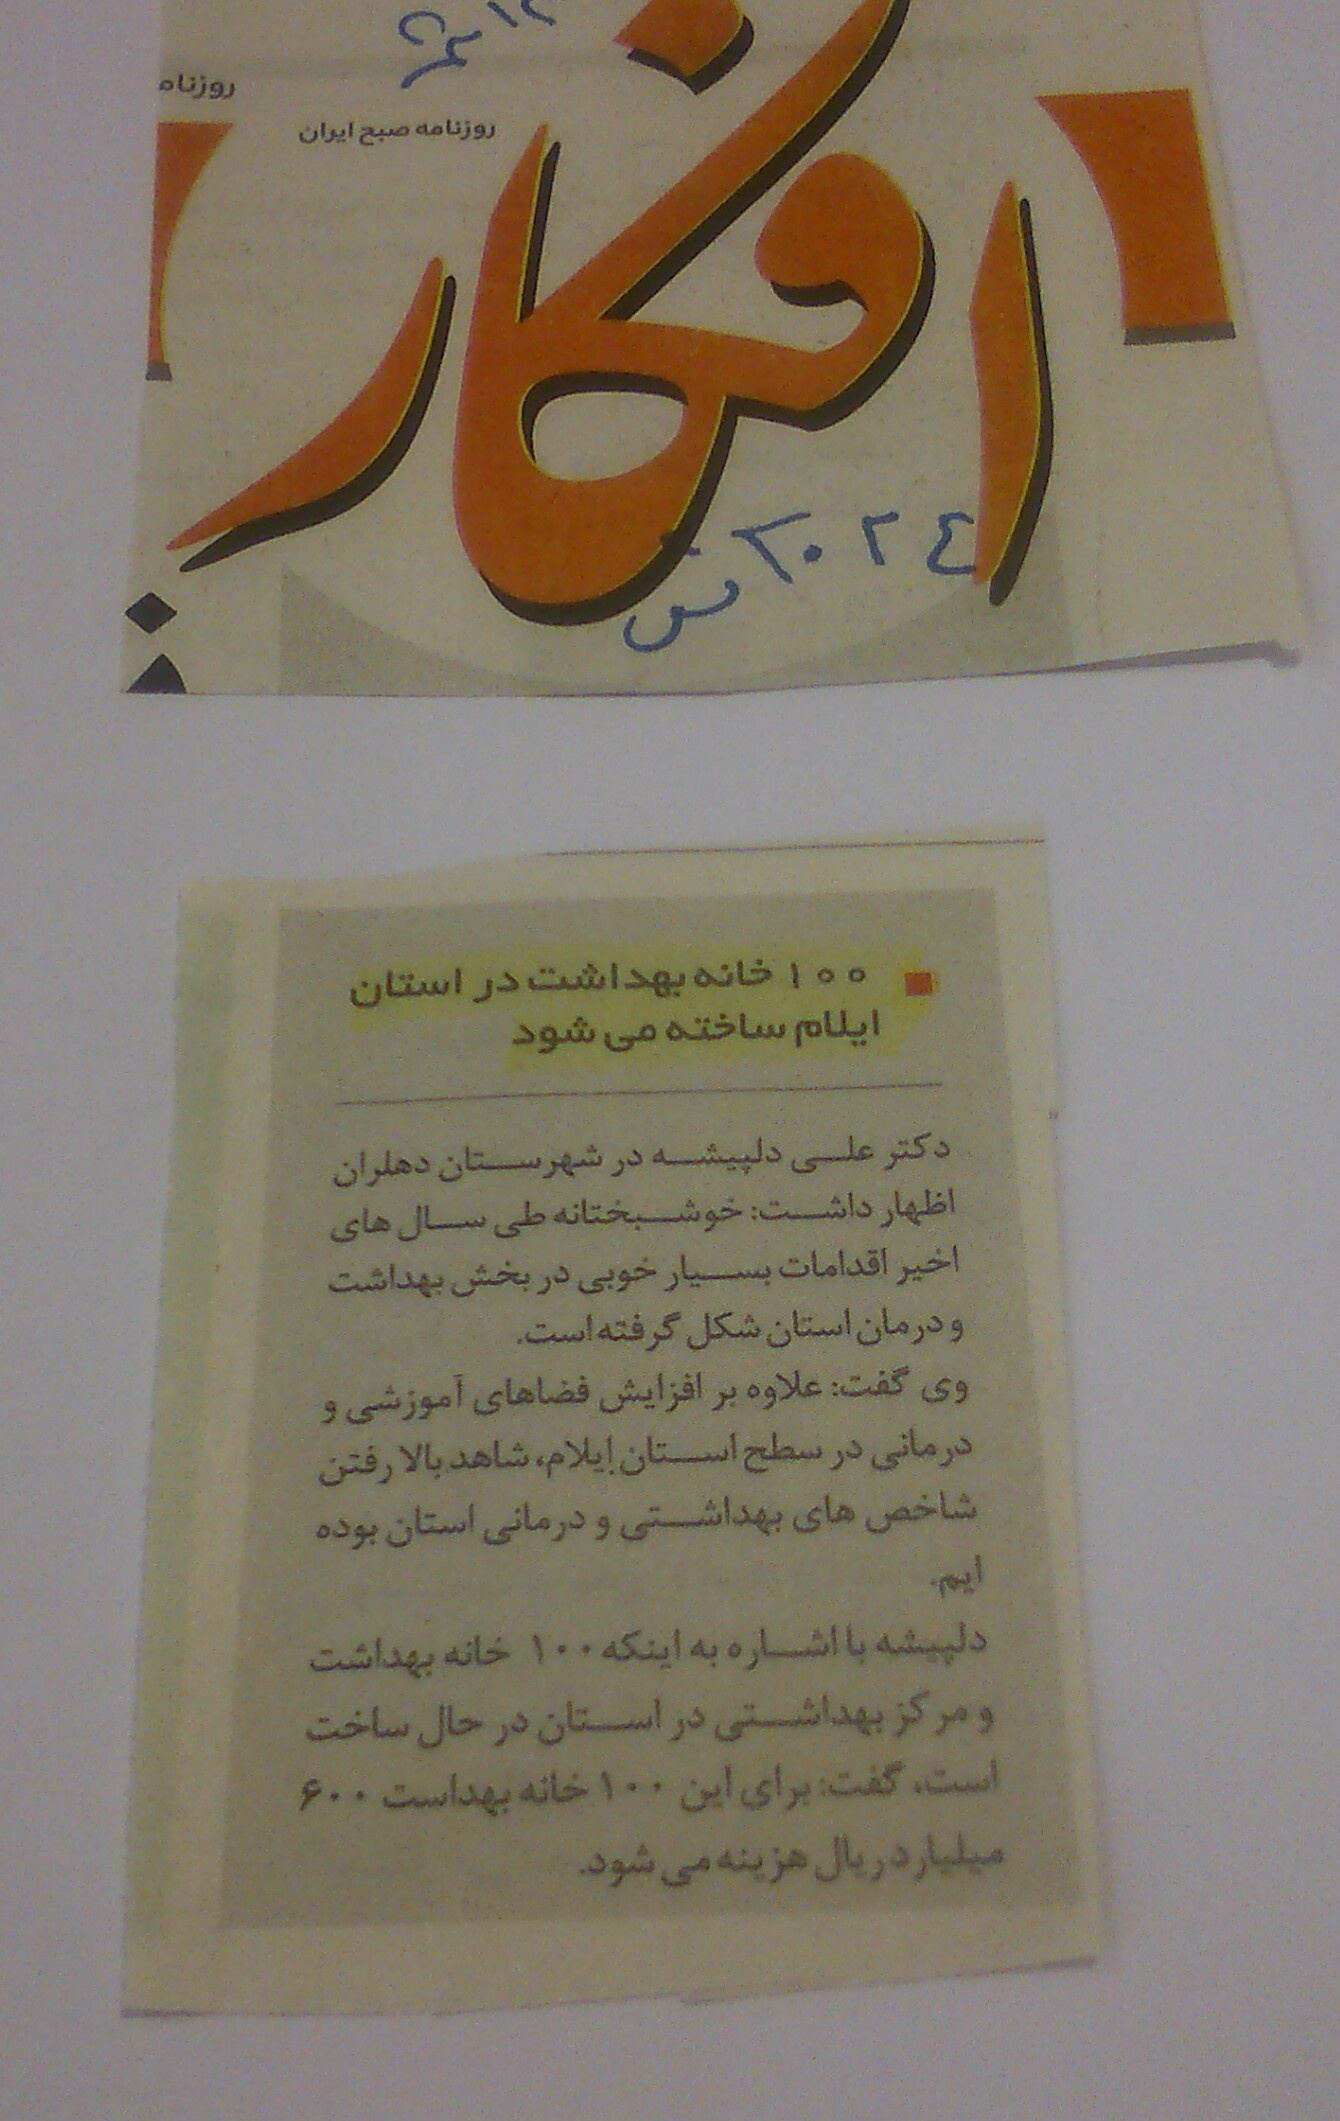 روزنامه صبح ایران
افکار
۱۰۰ خانه بهداشت در استان
ایلام ساخته می شود
دکتر علی دلپیشه در شهرستان دهلران
اظهار داشت: خوشبختانه طی سال های
اخیر اقدامات بسیار خوبی در بخش بهداشت
و درمان استان شکل گرفته است.
وی گفت: علاوه بر افزایش فضاهای آموزشی و
درمانی در سطح استان ایلام، شاهد بالا رفتن
شاخص های بهداشتی و درمانی استان بوده
ایم.
دلپیشه با اشاره به اینکه ۱۰۰ خانه بهداشت
و مرکز بهداشتی در استان در حال ساخت
است، گفت: برای این ۱۰۰ خانه بهداست ۶۰۰
میلیارد ریال هزینه می شود.